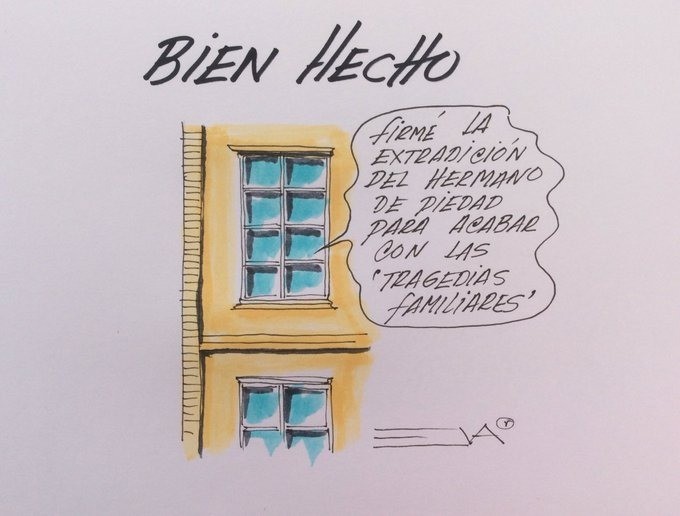 BIEN HECHO
FIRMÉ LA
EXTRADICIÓN
DEL HERMANO
DE PIEDAD
PARA ACABAR
CON LAS
'TRAGEDIAS
FAMILIARES'